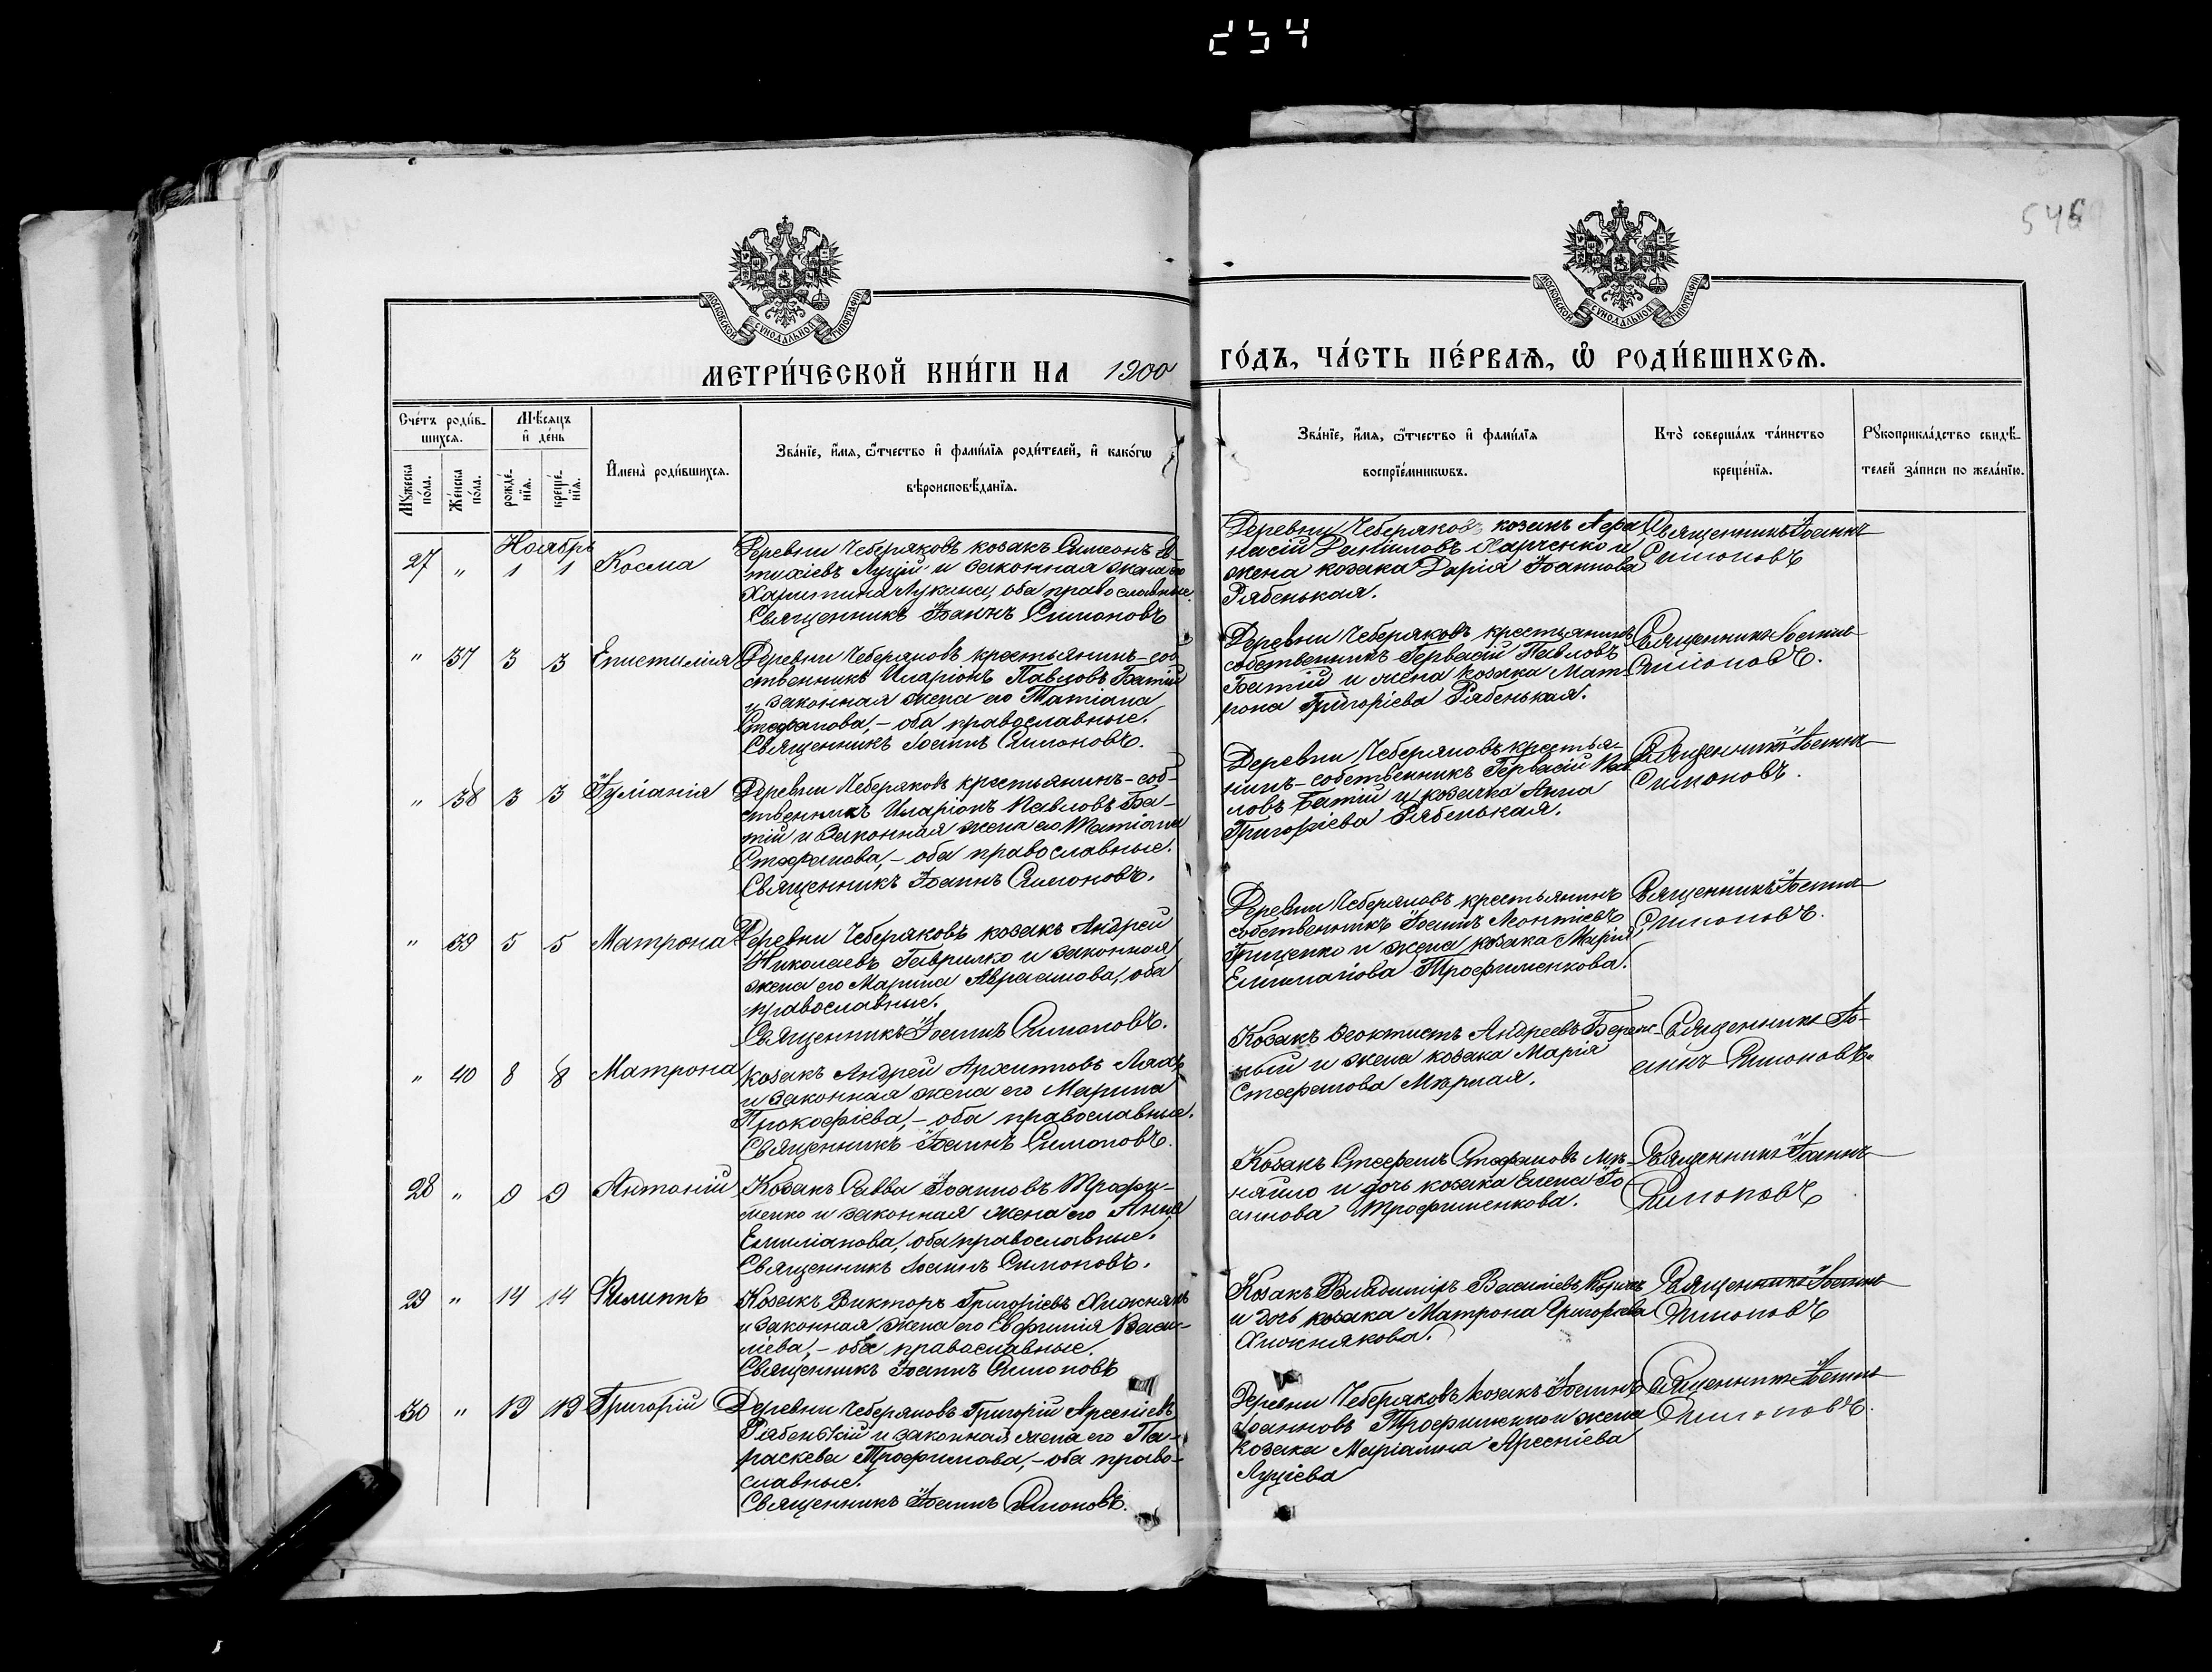 254
546
МОСКОВСКОЙ СѴНОДАЛЬНОЙ ТИПОГРАФІИ
МОСКОВСКОЙ СѴНОДАЛЬНОЙ ТИПОГРАФІИ
МЕТРИ́ЧЕСКОЙ КНИ́ГИ НА 1900
ГО́ДЪ, ЧА́СТЬ ПЕ́РВАѦ, Ѡ РОДИ́ВШИХСѦ.
Сче́тъ роди́в-
шихсѧ.
Мꙋ́жеска по́ла.
Же́нска по́ла.
Мѣ́сѧцъ
и҆ де́нь
рожде́-
нїѧ.
креще́-
нїѧ.
И҆мена̀ роди́вшихсѧ.
Зва́нїе, и҆́мѧ, ѻ҆́тчество и҆ фами́лїѧ роди́телей, и҆ како́гѡ
вѣроисповѣ́данїѧ.
Зва́нїе, и҆́мѧ, ѻ҆́тчество и҆ фами́лїѧ
воспрїе́мникѡвъ.
Кто̀ соверша́лъ та́инство
креще́нїѧ.
Рꙋкоприкла́дство свидѣ́-
телей за́писи по жела́нїю.
Ноябрь
27 " 1 1 Косма
Деревни Чеберяковъ козакъ Симеонъ Ев-
тихіевъ Луцій и законная жена его
Харитина Лукина, оба православные.
Священникъ Іоаннъ Симоновъ
Деревни Чеберяковъ козакъ Афа
насій Даніиловъ Харченко и
жена козака Дарія Іоаннова
Рябенькая.
Священникъ Іоаннъ
Симоновъ
" 37 3 3 Епистимія
Деревни Чеберяковъ крестьянинъ-соб
ственникъ Иларіонъ Павловъ Батій
и законная жена его Татіана
Стефанова,- оба православные.
Священникъ Іоаннъ Симоновъ.
Деревни Чеберяковъ крестьянинъ
собственникъ Гервасій Павловъ
Батій и жена козака Мат-
рона Григоріева Рябенькая.
Священникъ Іоаннъ
Симоновъ.
" 38 3 3 Іуліанія
Деревни Чеберяковъ крестьянинъ-соб-
ственникъ Иларіонъ Павловъ Ба-
тій и законная жена его Татіана
Стефанова,- оба православные.
Священникъ Іоаннъ Симоновъ.
Деревни Чеберяковъ крестья-
нинъ-собственникъ Гервасій Пав
ловъ Батій и козачка Анна
Григоріева Рябенькая.
Священникъ Іоаннъ
Симоновъ.
" 39 5 5 Матрона
Деревни Чеберяковъ козакъ Андрей
Николаевъ Гаврилко и законная
жена его Марина Авраамова, оба
православные.
Священникъ Іоаннъ Симоновъ.
Деревни Чеберяковъ крестьянинъ
собственникъ Іоаннъ Леонтіевъ
Грищенко и жена козака Марія
Емиліанова Трофименкова.
Священникъ Іоаннъ
Симоновъ.
" 40 8 8 Матрона
Козакъ Андрей Архиповъ Ляхъ
и законная жена его Марина
Прокофіева,- оба православные.
Священникъ Іоаннъ Симоновъ.
Козакъ Феоктистъ Андреевъ
ный и жена козака Марія
Стефанова Мирная.
Священникъ Іо-
аннъ Симоновъ.
28 " 9 9 Антоній
Козакъ Савва Іоанновъ Трофи-
менко и законная жена его Анна
Емиліанова, оба православные.
Священникъ Іоаннъ Симоновъ.
Козакъ Стефанъ Стефановъ
и дочь козака Елена Іо
аннова Трофименкова.
Священникъ Іоаннъ
Симоновъ
29 " 14 14 Филиппъ
Козакъ Викторъ Григоріевъ Хижнякъ
и законная жена его Евфимія Васи-
ліева,- оба православные.
Священникъ Іоаннъ Симоновъ
Козакъ Владиміръ Василіевъ
и дочь козака Матрона Григоріева
Хижнякова.
Священникъ Іоаннъ
Симоновъ
30 " 19 19 Григорій
Деревни Чеберяковъ Григорій Арсеніевъ
Рябенькій и законная жена его Па-
раскева Трофимова,- оба право-
славные.
Священникъ Іоаннъ Симоновъ.
Деревни Чеберяковъ козакъ Іоаннъ
Іоанновъ Трофименко и жена
козака Маріамна Арсеніева
Луціева
Священникъ Іоаннъ
Симоновъ.